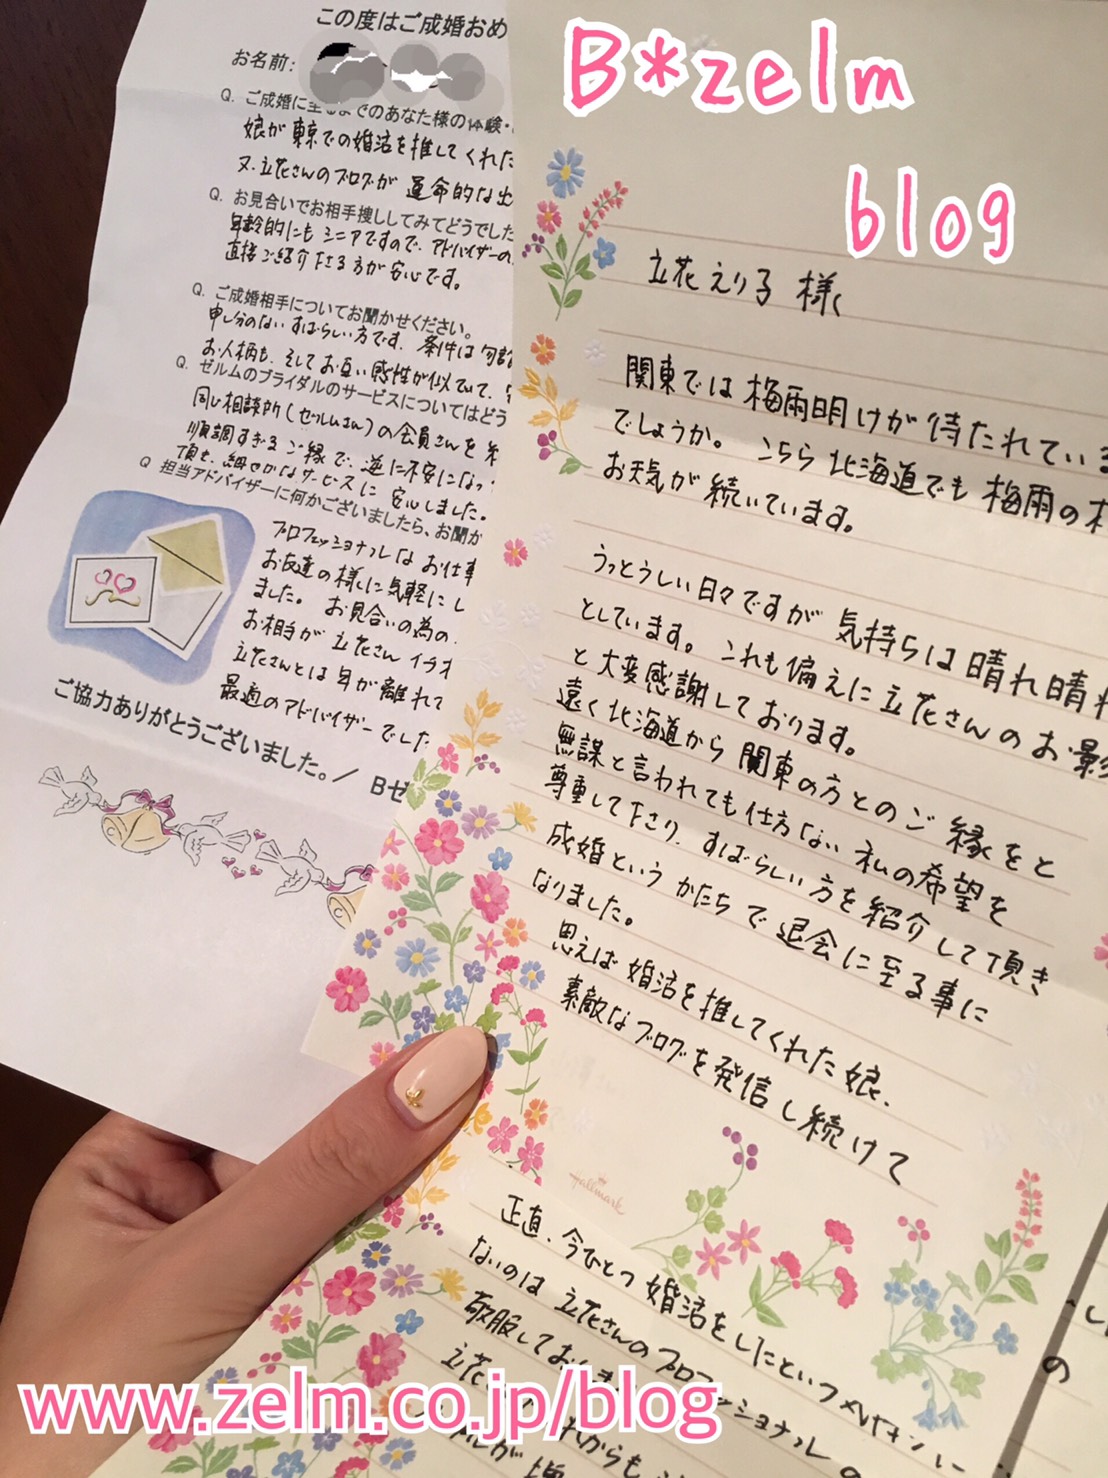 B*zelm
blog
この度はご成婚おめ
お名前:
Q. ご成婚に至るまでのあなた様の体験・
娘が東京での婚活を推してくれた
又、立花さんのブログが 運命的な出
Q. お見合いでお相手捜ししてみてどうでした
年齢的にも シニアですので、アドバイザーの
直接ご紹介下さる方が安心です。
Q. ご成婚相手についてお聞かせください。
申し分のない すばらしい方です。条件は勿論
お人柄も、そしてお互い感性が似ていて、
Q. ゼルムのブライダルのサービスについてはどう
同じ相談所(ゼルムさん)の会員さんを
順調すぎる ご縁で、逆に不安になっ
頂き、細やかなサービスに 安心しました。
Q 担当アドバイザーに何かございましたら、お聞か
プロフェッショナルな お仕事
お友達の様に気軽にし
ました。 お見合いの為の
お相手が 立花さん イチオ
立花さんとは 年が離れて
最適のアドバイザーでした
ご協力ありがとうございました。/ Bゼ
立花 えり子 様
関東では 梅雨明けが 待たれている
でしょうか。 こちら 北海道でも 梅雨の様
お天気が 続いています。
うっとうしい日々ですが 気持ちは 晴れ晴れ
としています。 これも偏えに 立花さんのお影
と 大変感謝しております。
遠く北海道から 関東の方とのご 縁をと
無謀と言われても仕方ない 私の希望を
尊重して下さり、すばらしい方を紹介して頂き
成婚という かたちで 退会に至る事に
なりました。
思えば 婚活を推してくれた 娘、
素敵なブログを発信し続けて
Hallmark
正直、今ひとつ 婚活をしたという
ないのは 立花さんのプロフェッショナルの
敬服しており
立花
れからも
www.zelm.co.jp/blog